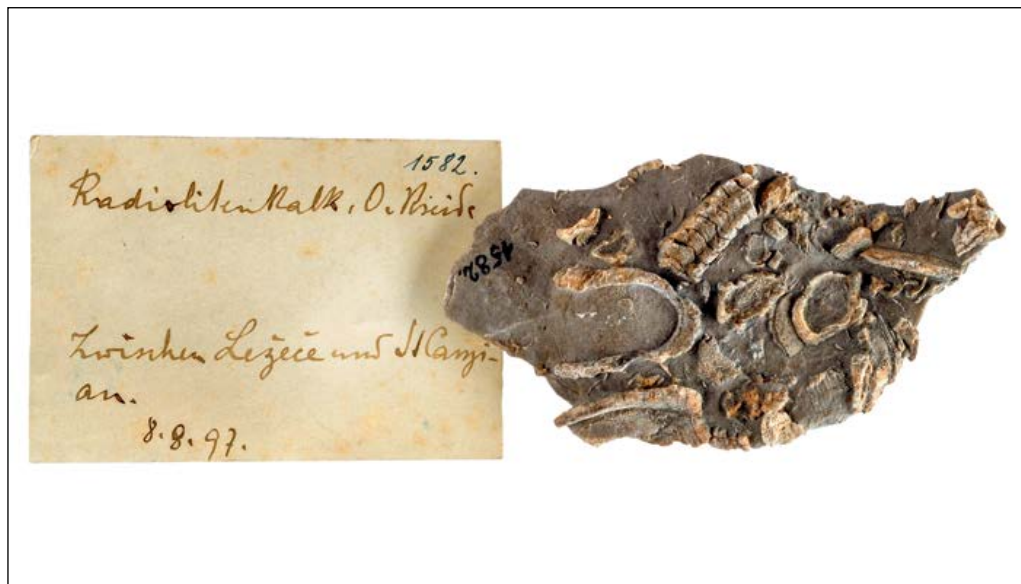 1582.
Radiolitenkalk, O. Kreide
Zwischen Ležeče und St Canzi-
an.
8. 8. 97.
1582.